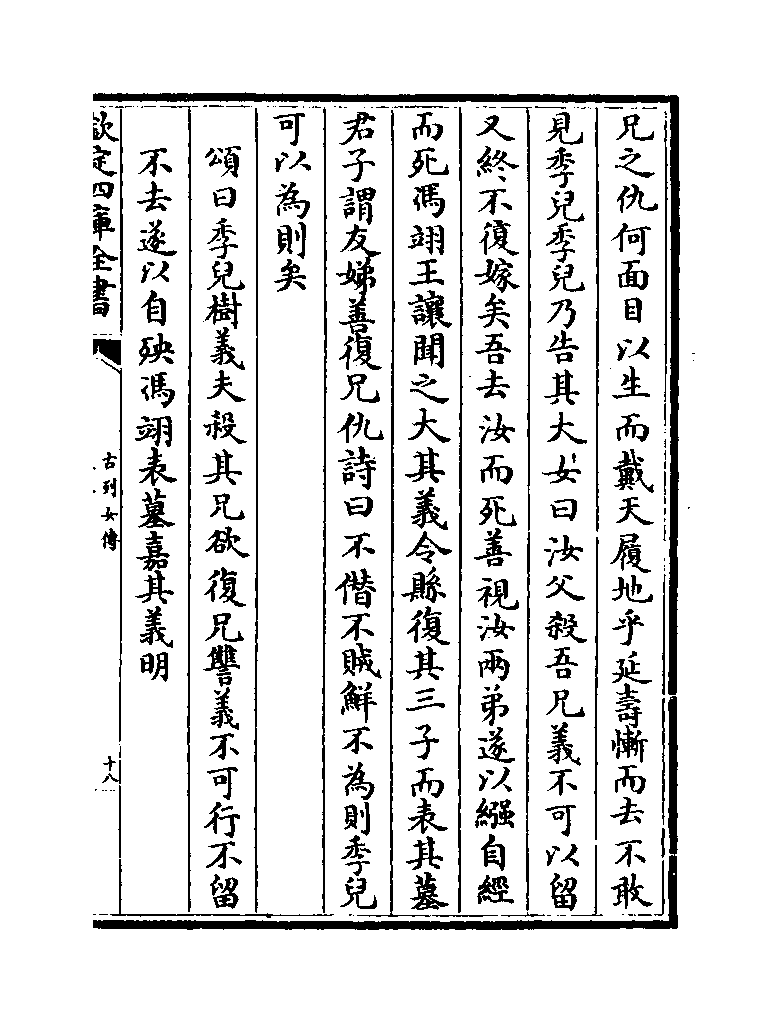 兄之仇何面目以生而戴天履地乎延壽慚而去不敢
見季兒季兒乃告其大女曰汝父殺吾兄義不可以留
又終不復嫁矣吾去汝而死善視汝兩弟遂以繦自經
而死馮翊王讓聞之大其義令縣復其三子而表其墓
君子謂友娣善復兄仇詩曰不僭不賊鮮不為則季兒
可以為則矣
頌曰季兒樹義夫殺其兄欲復兄讐義不可行不留
不去遂以自殃馮翊表墓嘉其義明
欽定四庫全書
古列女傳
十八